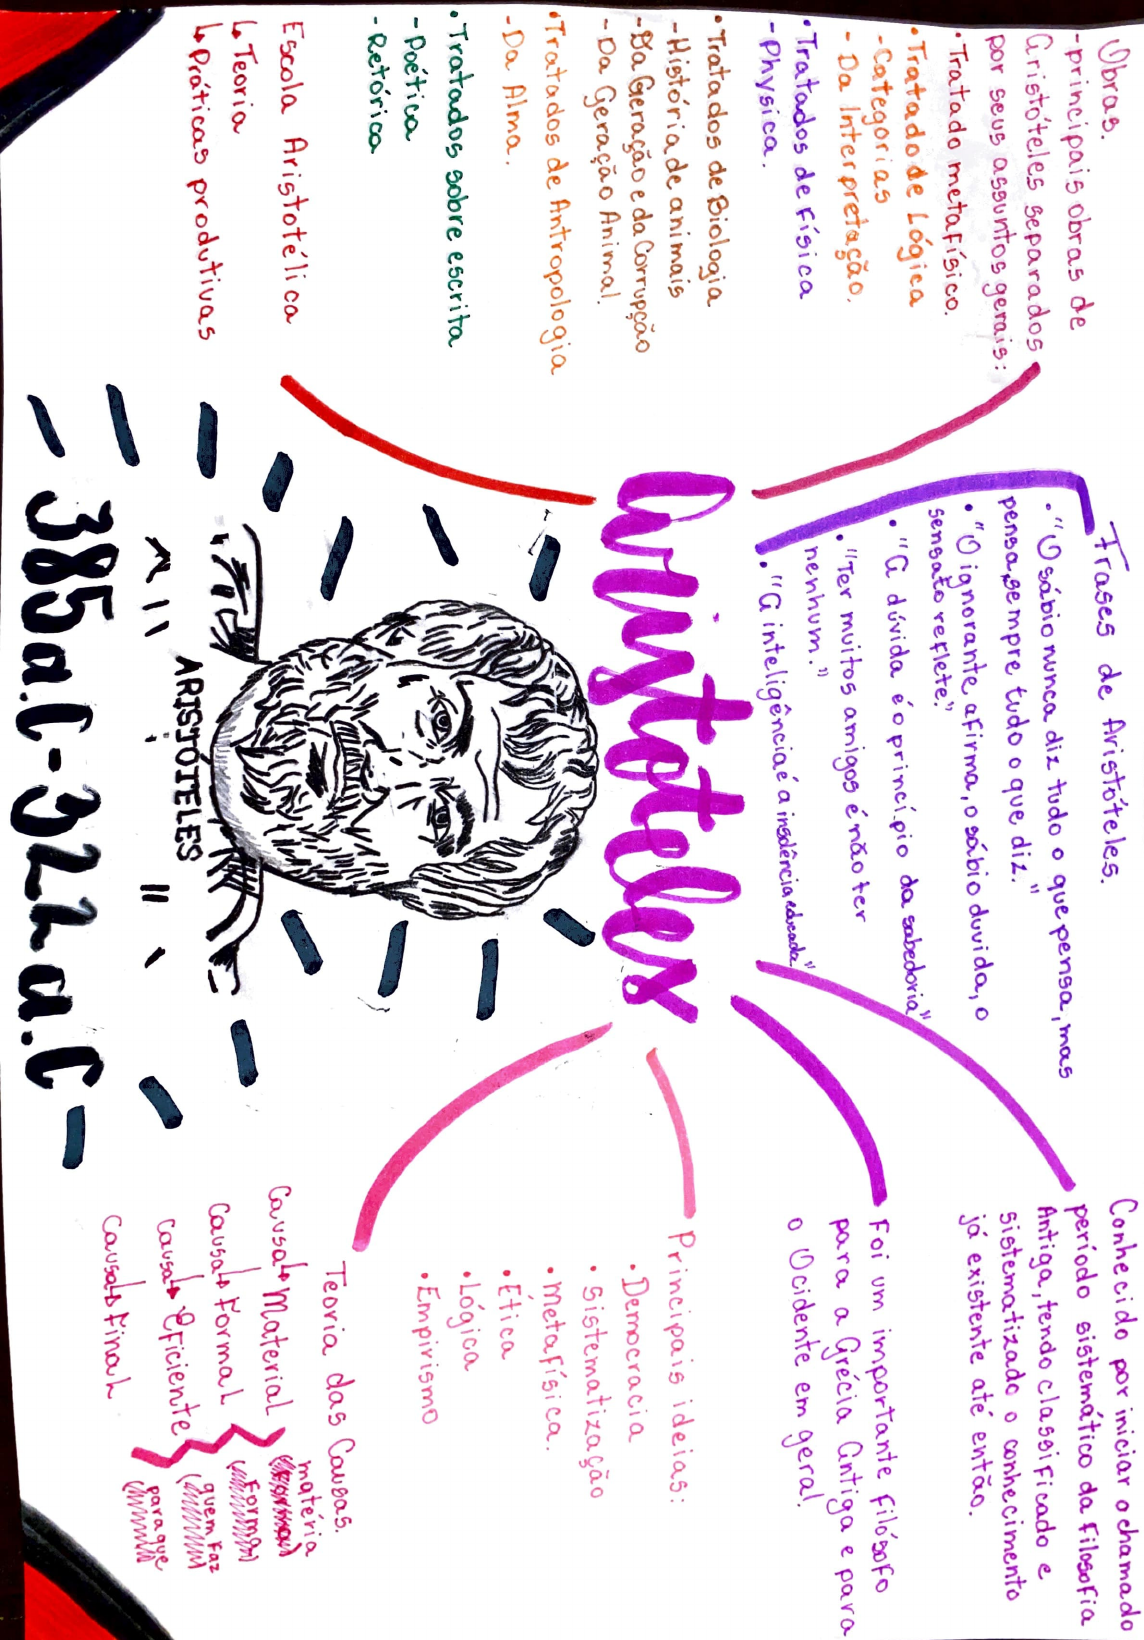 Obras.
-principais obras de
Aristóteles separados
por seus assuntos gerais:
• Tratado metafísico.
• Tratado de Lógica
- Categorias
- Da Interpretação.
• Tratados de Física
- Physica.
• Tratados de Biologia
- História de animais
- Da Geração e da Corrupção
- Da Geração Animal
• Tratados de Antropologia
- Da Alma.
• Tratados sobre escrita
- Poética
- Retórica
Escola Aristotélica
↳ Teoria
↳ Práticas produtivas
Frases de Aristóteles.
• "O sábio nunca diz tudo o que pensa, mas
pensa, sempre tudo o que diz."
• "O ignorante afirma, o sábio duvida, o
sensato reflete."
• "A dúvida é o princípio da sabedoria"
• "Ter muitos amigos é não ter
nenhum."
• "A inteligência é a insolência educada"
Aristoteles
ARISTÓTELES
385a.C-322a.C
Conhecido por iniciar o chamado
período sistemático da filosofia
Antiga, tendo classificado e
sistematizado o conhecimento
já existente até então.
Foi um importante filósofo
para a Grécia Antiga e para
o Ocidente em geral.
Principais ideias:
• Democracia
• Sistematização
• Metafísica.
• Etica
• Lógica
• Empirismo
Teoria das Causas.
Causa↳ Material matéria
Causa↳ Formal Forma
Causa↳ Eficiente quem Faz
Causa↳ Final para que